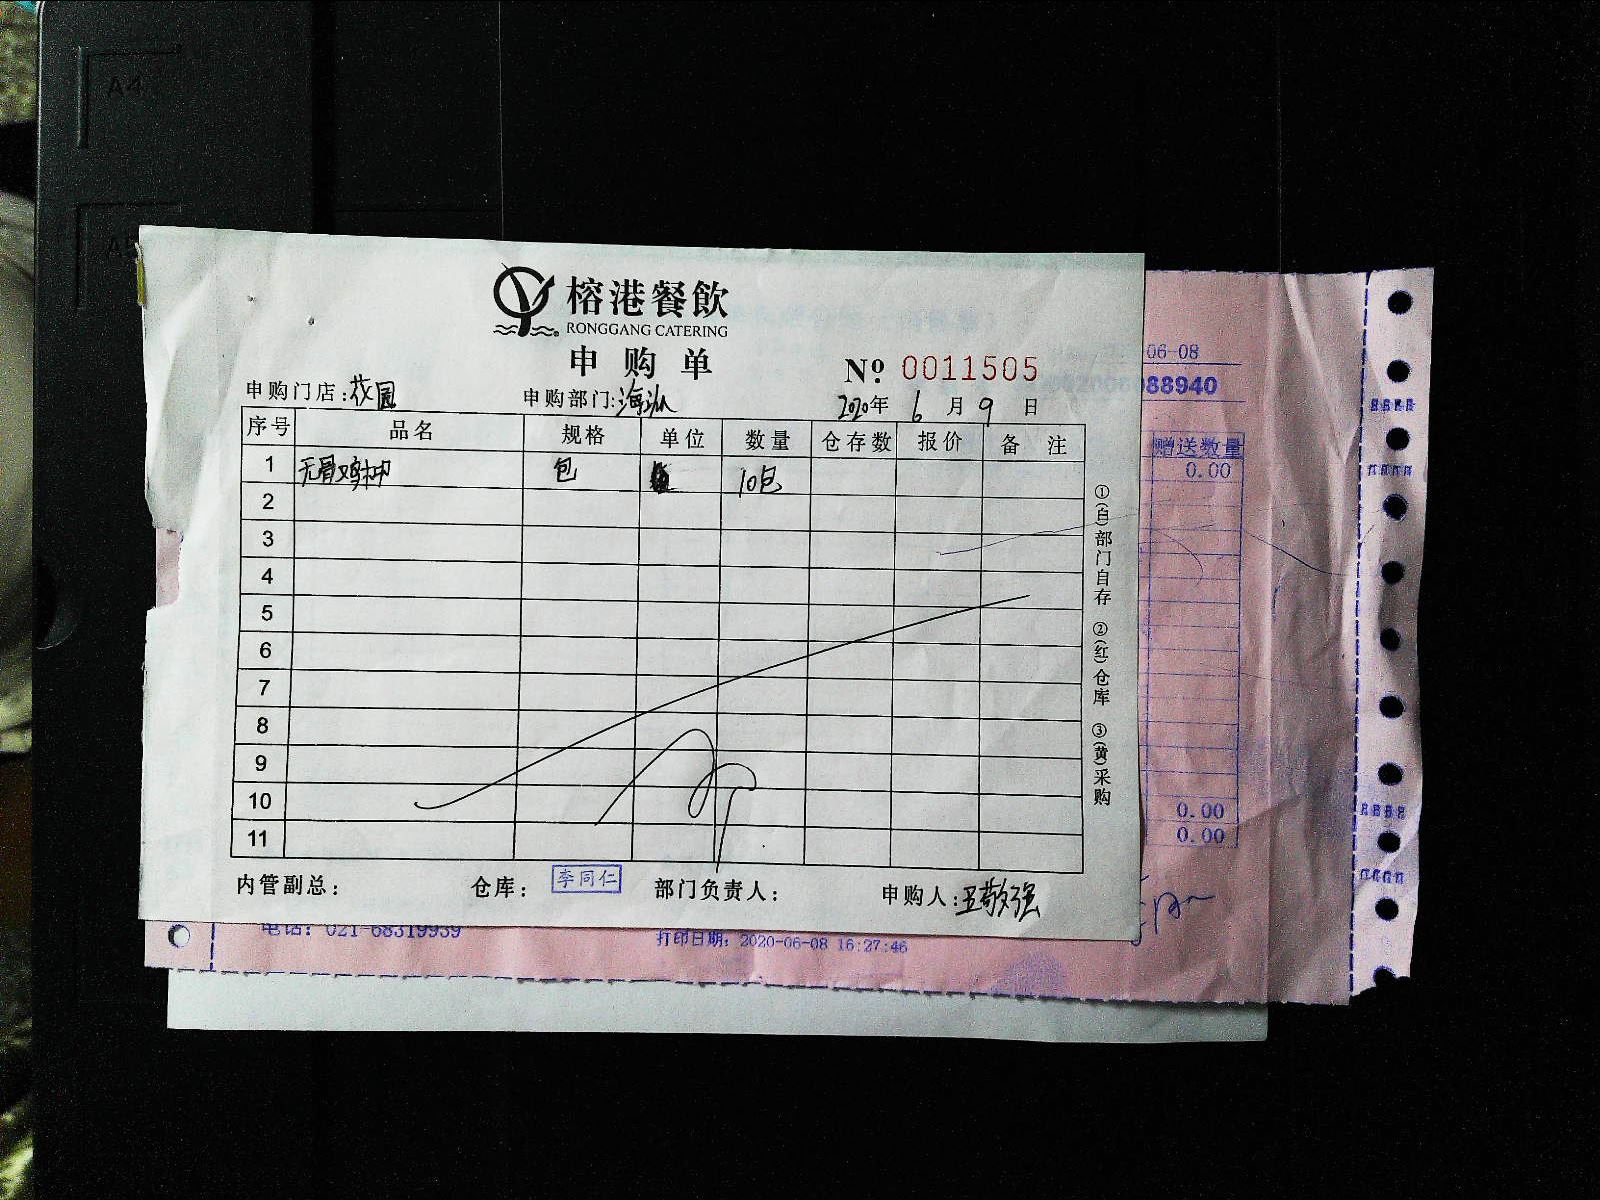 A4
A5
榕港餐飲
RONGGANG CATERING
申购单
№ 0011505
申购门店:花园 申购部门: 2020年 6 月 9 日
序号 品名 规格 单位 数量 仓存数 报价 备注
1 无骨鸡柳 包 10包
2
3
4
5
6
7
8
9
10
11
①(白)部门自存 ②(红)仓库 ③(黄)采购
内管副总: 仓库: 李同仁 部门负责人: 申购人:王敬强
06-08
088940
赠送数量
0.00
0.00
0.00
电话: 021-68319939
打印日期: 2020-06-08 16:27:46